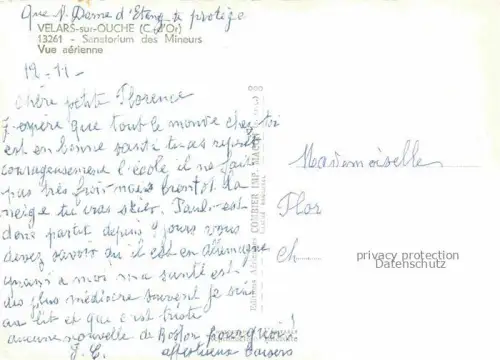 Que N. Dame d'Etang te protège
VELARS-sur-OUCHE (C.-d'Or)
13261 - Sanatorium des Mineurs
Vue aérienne
19-11-
Chère petite Florence
J'espère que tout le monde chez toi
est en bonne santé tu as repris
courageusement l'école il ne fait
pas très froid mais bientôt la
neige tu iras skier. Paul est
donc partit depuis 9 jours vous
devez savoir qu'il est en Allemagne
quant a moi ma santé est
des plus médiocre souvent je suis
au lit et que c'est triste
aucune nouvelle de pourquoi!
J. C. affectueux Baisers
COMBIER IMP. MACON
Mademoiselle
Flor
Ch
privacy protection
Datenschutz